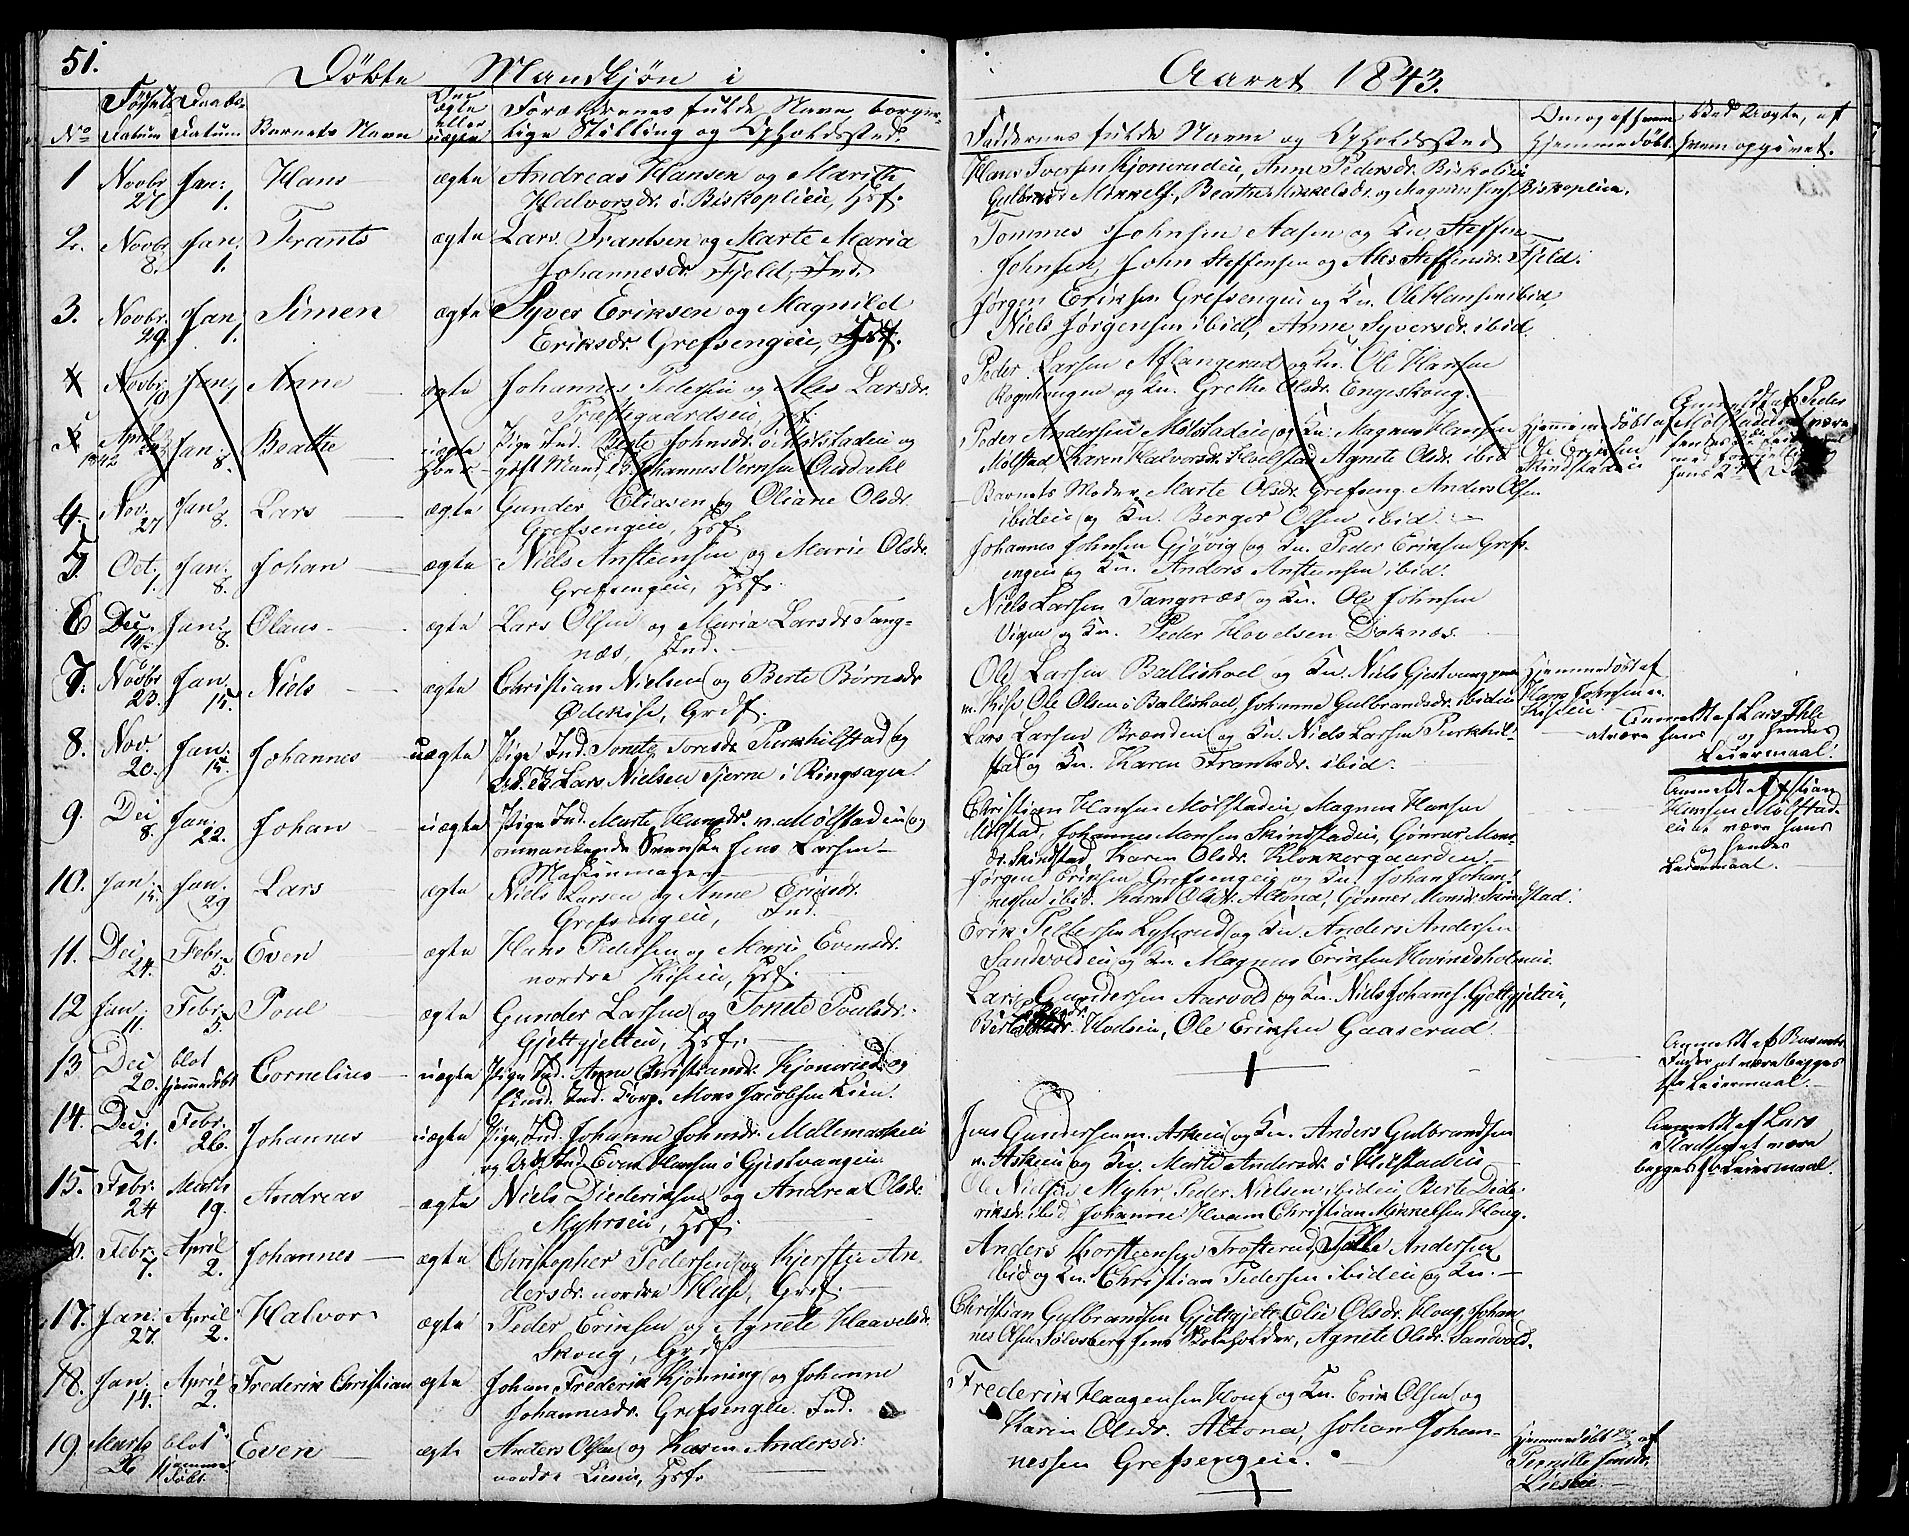 51.
Døbte Mandkjøn i Aaret 1843.
No
Fødsels Datum
Daabs Datum
Barnets Navn
Om ægte eller uægte
Forældrenes fulde Navn borger-
lige Stilling og Opholdssted.
Faddernes fulde Navne og Opholdssted
Om og af hvem Hjemmedøbt.
Ved Uægte, af hvem opgivet.
1 Novbr 27 Jan: 1. Hans ægte Andreas Hansen og Marithe
Halvorsdr. i Biskoplien, Hsf.
Hans Iversen Kjonerudeie, Anne Pedersdr. Biskoplien
Gulbrand Mikkels., Beathe Mikkelsdr. og Magnus Jens. Biskoplien.
2. Novbr 8. Jan: 1. Frants ægte Lars Frantsen og Marte Maria
Johannesdr. Fjeld, Ind.
Tommes Johnsen Aasen og Kn. Steffen
Johnsen, John Steffensen og Ales Steffensdr. Fjeld.
3. Novbr. 29. Jan 1. Simen ægte Syver Eriksen og Magnild
Eriksdr. Grefsengeie, Hsf.
Jørgen Eriksen Grefsengeie og Kn. Ole Hansen ibid,
Niels Jørgensen ibid, Anne Syversdr. ibid.
4 Novbr. 10 Jan. 1 Anne ægte Johannes Pedersen og Ales Larsdr.
Præstegaardseie, Hsf.
Peder Larsen Aflangerud og Kn. Ole Hansen
og Kn. Grethe Olsdr. Engeskoug.
5 April 1842 Jan. 8. Beathe uægte Pige Ind. Berte Johnsdr. i Molstadeie og
gift Mand Johannes
Peder Andersen Molstadeie og Kn. Magnus Hansen
Molstad, Karen Halvorsdr. Hoelstad, Agnete Olsdr. ibid
Hjemmedøbt af
Skindstadeie
Anmeldt af Peder
Molstadeie at være
4. Nov. 27 Jan. 8. Lars ægte Gunder Eliasen og Oliane Olsdr.
Grefsengeie, Hsf.
Barnets Moder, Marte Olsdr. Grefseng, Anders Olsen
ibideie og Kn. Berger Olsen ibid.
5. Oct. 1. Jan. 8. Johan ægte Niels Anstensen og Marie Olsdr.
Grefsengeie, Hsf.
Johannes Johnsen Gjøvig og Kn. Peder Eriksen Grefs-
engeie og Kn. Anders Anstensen ibid.
6 Dec. 14. Jan. 8. Olaus ægte Lars Olsen og Maria Larsdr. Tang-
næs, Ind.
Niels Larsen Tangnæs og Kn. Ole Johnsen
Vigen og Kn. Peder Hovelsen Doknæs.
7. Novbr 23. Jan. 15. Niels ægte Christian Nielsen og Berte Børresdr.
Ødekise, Grdf.
Ole Larsen Ballishoel og Kn. Niels Gjestvang
n. Kise, Ole Olsen i Ballishoel, Johanne Gulbrandsdr. ibideie
Hjemmedøbt af
Hans Johnsen n.
Kiseie
8. Nov. 20. Jan. 15. Johannes uægte Pige Ind. Tonete Toresdr. Purkhilstad og
Lars Nielsen Tjerne i Ringsager
Lars Larsen Brænden og Kn. Niels Larsen Purkhil-
stad og Kn. Karen Frantsdr. ibid.
Anmeldt af Lars Ihle
at være hans og hendes
Leiermaal.
9. Dec 8. Jan. 22. Johan uægte Pige Ind. Marte Hansdr. n. Mølstadeie og
omvankende Svenske Jens Larsen
Maskinmager
Christian Hansen Molstadeie, Magnus Hansen
Molstad, Johannes Monsen Skindstadeie, Gønner Mons-
dr. Skindstad, Karen Olsdr. Klokkergaarden.
Anmeldt af Christian
Hansen Molstad-
eie at være hans
og hendes
Leiermaal.
10. Jan. 15. Jan. 29 Lars ægte Niels Larsen og Anne Ericsdr.
Grefsengeie, Ind.
Jørgen Eriksen Grefsengeie og Kn. Johan Johan-
nessen ibid. Karen Olsdr. Altona, Gønner Monsdr. Skindstad.
11. Dec 24. Febr. 5. Even ægte Hans Pedersen og Marie Evensdr.
nordre Kiseie, Hsf.
Erik Pedersen Lyserud og Kn. Anders Andersen
Sandvoldeie og Kn. Magnus Eriksen Hovindsholmeie.
12 Jan. 11. Febr. 5 Poul ægte Gunder Larsen og Tonete Poulsdr.
Gjeltgjelteie, Hsf.
Lars Gundersen Aarvold og Kn. Niels Johans. Gjeltgjelteie,
Berte Hodseie, Ole Eriksen Gaaserud
13 Dec 20. blot hjemmedøbt Cornelius uægte Pige Ind. Anne Christiansdr. Kjonerud og
Ind. Corp. Mons Jacobsen Lien.
Anmeldt af Barnets
Fader at være begges
Leiermaal.
14. Dec. 21. Febr. 26. Johannes uægte Pige, Ind. Johanne Johnsdr. Mellemaskeie
og Ind. Even Hansen i Gjestvangeie
Jens Gundersen m. Askeie og Kn. Anders Gulbrandsen
n. Askeie og Kn. Marte Andersdr. i Hilstadeie
Anmeldt af Lars
Kladseg at være
begges Leiermaal.
15. Febr. 24 Marts 19. Andreas ægte Niels Diederiksen og Andrea Olsdr.
Myhrseie, Hsf.
Ole Nielsen Myhr, Peder Nielsen ibideie, Berte Dide-
riksdr. ibid, Johanne Hvam, Christian Mikkelsen Houg.
16. Febr. 7. April 2. Johannes ægte Christopher Pedersen og Kjerstie An-
dersdr. nordre Kise, Grdf.
Anders Thorstensen Trosterud, Tolle Andersen
ibid og Kn. Christian Pedersen ibideie og Kn.
17. Jan. 27. April 2. Halvor ægte Peder Eriksen og Agnete Haavelsdr.
Skoug, Grdf
Christian Gulbrandsen Gjeltgjelt, Elie Olsdr. Houg, Johan-
nes Olsen Solvsberg, Jens Botsholder, Agnete Olsdr. Sandvold.
18. Jan. 14. April 2. Frederik Christian ægte Johan Frederik Kjønning og Johanne
Johannesdr. Grefsengeie. Ind.
Frederik Haagensen Houg og Kn. Erik Olsen og
Karin Olsdr. Altona, Johan Johan-
nessen Grefsengeie.
19. Marts 26 blot hjemmedøbt. Even ægte Anders Olsen og Karen Andersdr.
nordre Lieseie, Hsf.
Hjemmedøbt af
Pernille Jensdr.
Lieseie.